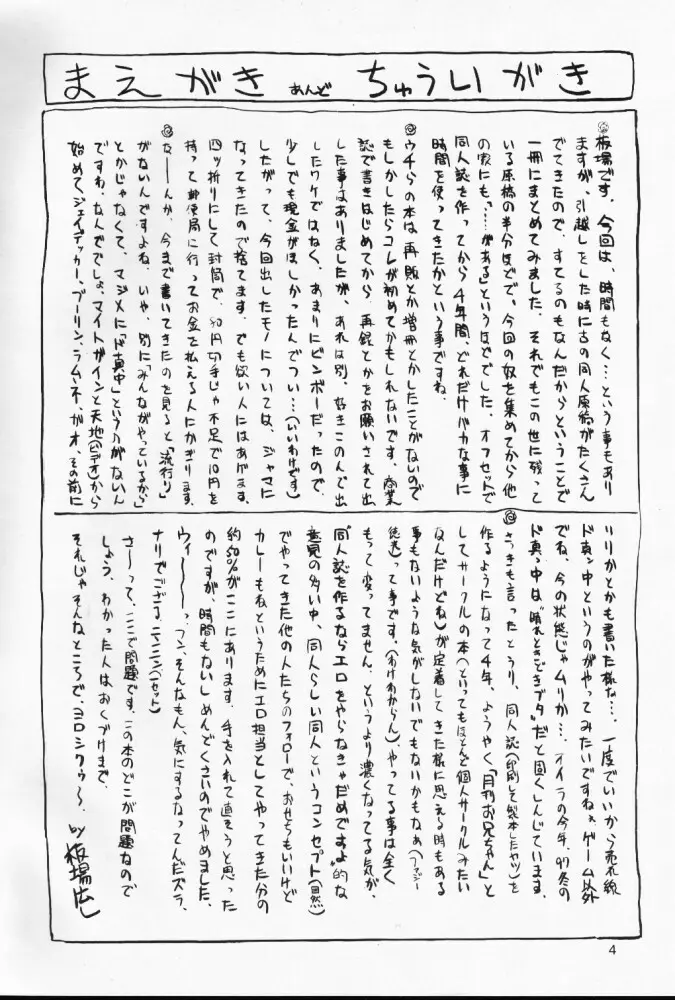 まえがき あんど ちゅういがき
◎板場です。今回は、時間もなく…という事もあり
ますが、引越しをした時に古の同人原稿がたくさん
でてきたので、すてるのもなんだからということで
一冊にまとめてみました。それでもこの世に残って
いる原稿の半分ほどで、今回の奴を集めてから他
の家にも、"……がある"というほどでした。オフセットで
同人誌を作ってから4年間、どれだけバカな事に
時間を使ってきたかという事ですね。
◎ウチらの本は再販とか増冊とかしたことがないので
もしかしたらコレが初めてかもしれないです。商業
誌で書きはじめてから、再録とかをお願いされて出
した事はありましたが、あれは別。好きこのんで出
したワケではなく、あまりにビンボーだったので、
少しでも現金がほしかったんでつい…(いいわけです)
したがって、今回出したモノについては、ジャマに
なってきたので捨てます。でも欲い人にはあげます。
四ッ折りにして封筒で、80円切手じゃ不足で10円を
持って郵便局に行ってお金を払える人にかぎります。
◎なーんか、今まで書いてきたのを見ると「流行り」
がないんですよね。いや、別に「みんながやっているから」
とかじゃなくて、マジメに「ド真中」というのがないん
ですわ。なんででしょ。マイトガインと天地(ビデオ)から
始めて、ジェイデッカー、プーリン、ラムネ、ガオ、その前に
リリカとかも書いた様な…。一度でいいから売れ線
ド真ン中というのがやってみたいですねぇ。ゲーム以外
でね。今の状態じゃムリか…。オイラの今年、97冬の
ド真っ中は"晴れときどきブタ"だと固くしんじています。
◎さっきも言ったとうり、同人誌(印刷して製本したヤツ)を
作るようになって4年、ようやく「月刊お兄ちゃん」と
してサークルの本(といってもほとんど個人サークルみたい
なんだけどね)が定着してきた様に思える時もある
事もないような気がしないでもないかもなぁ(ファジー
放送)って事です。(わけわからん)。やってる事は全く
もって変ってません。というより濃くなってる気が、
"同人誌を作るならエロをやらなきゃだめですよ"的な
意見の多い中、同人らしい同人というコンセプト(自然)
でやってきた他の人たちのフォローで、おせちもいいけど
カレーもねというためにエロ担当としてやってきた分の
約50%がここにあります。手を入れて直そうと思った
のですが、時間もないしめんどくさいのでやめました。
ウィーーーっ、フン、そんなもん、気にするなってんだズラ、
ナリでござる、ニンニン(1セット)
さーって、ここで問題です。この本のどこが問題なので
しょう。わかった人はおくづけまで。
それじゃそんなところで、ヨロシクゥ〜。
by板場広し
4